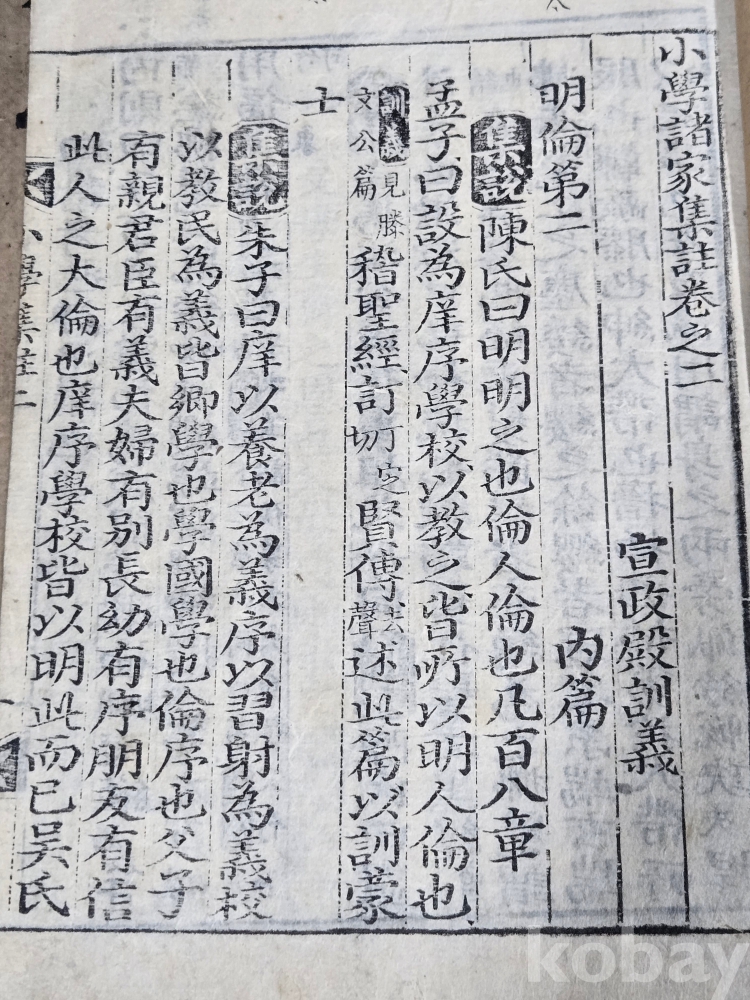 小學諸家集註卷之二
宣政殿訓義
明倫第二
內篇
集說 陳氏曰明明之也倫人倫也凡百八章
孟子曰設為庠序學校以教之皆所以明人倫也
訓義 見滕文公篇 稽聖經訂 丁定切 賢傳 去聲 述此篇以訓蒙
士
集說 朱子曰庠以養老為義序以習射為義校
以教民為義皆鄉學也學國學也倫序也父子
有親君臣有義夫婦有別長幼有序朋友有信
此人之大倫也庠序學校皆以明此而已吳氏
小學集註二
kobay